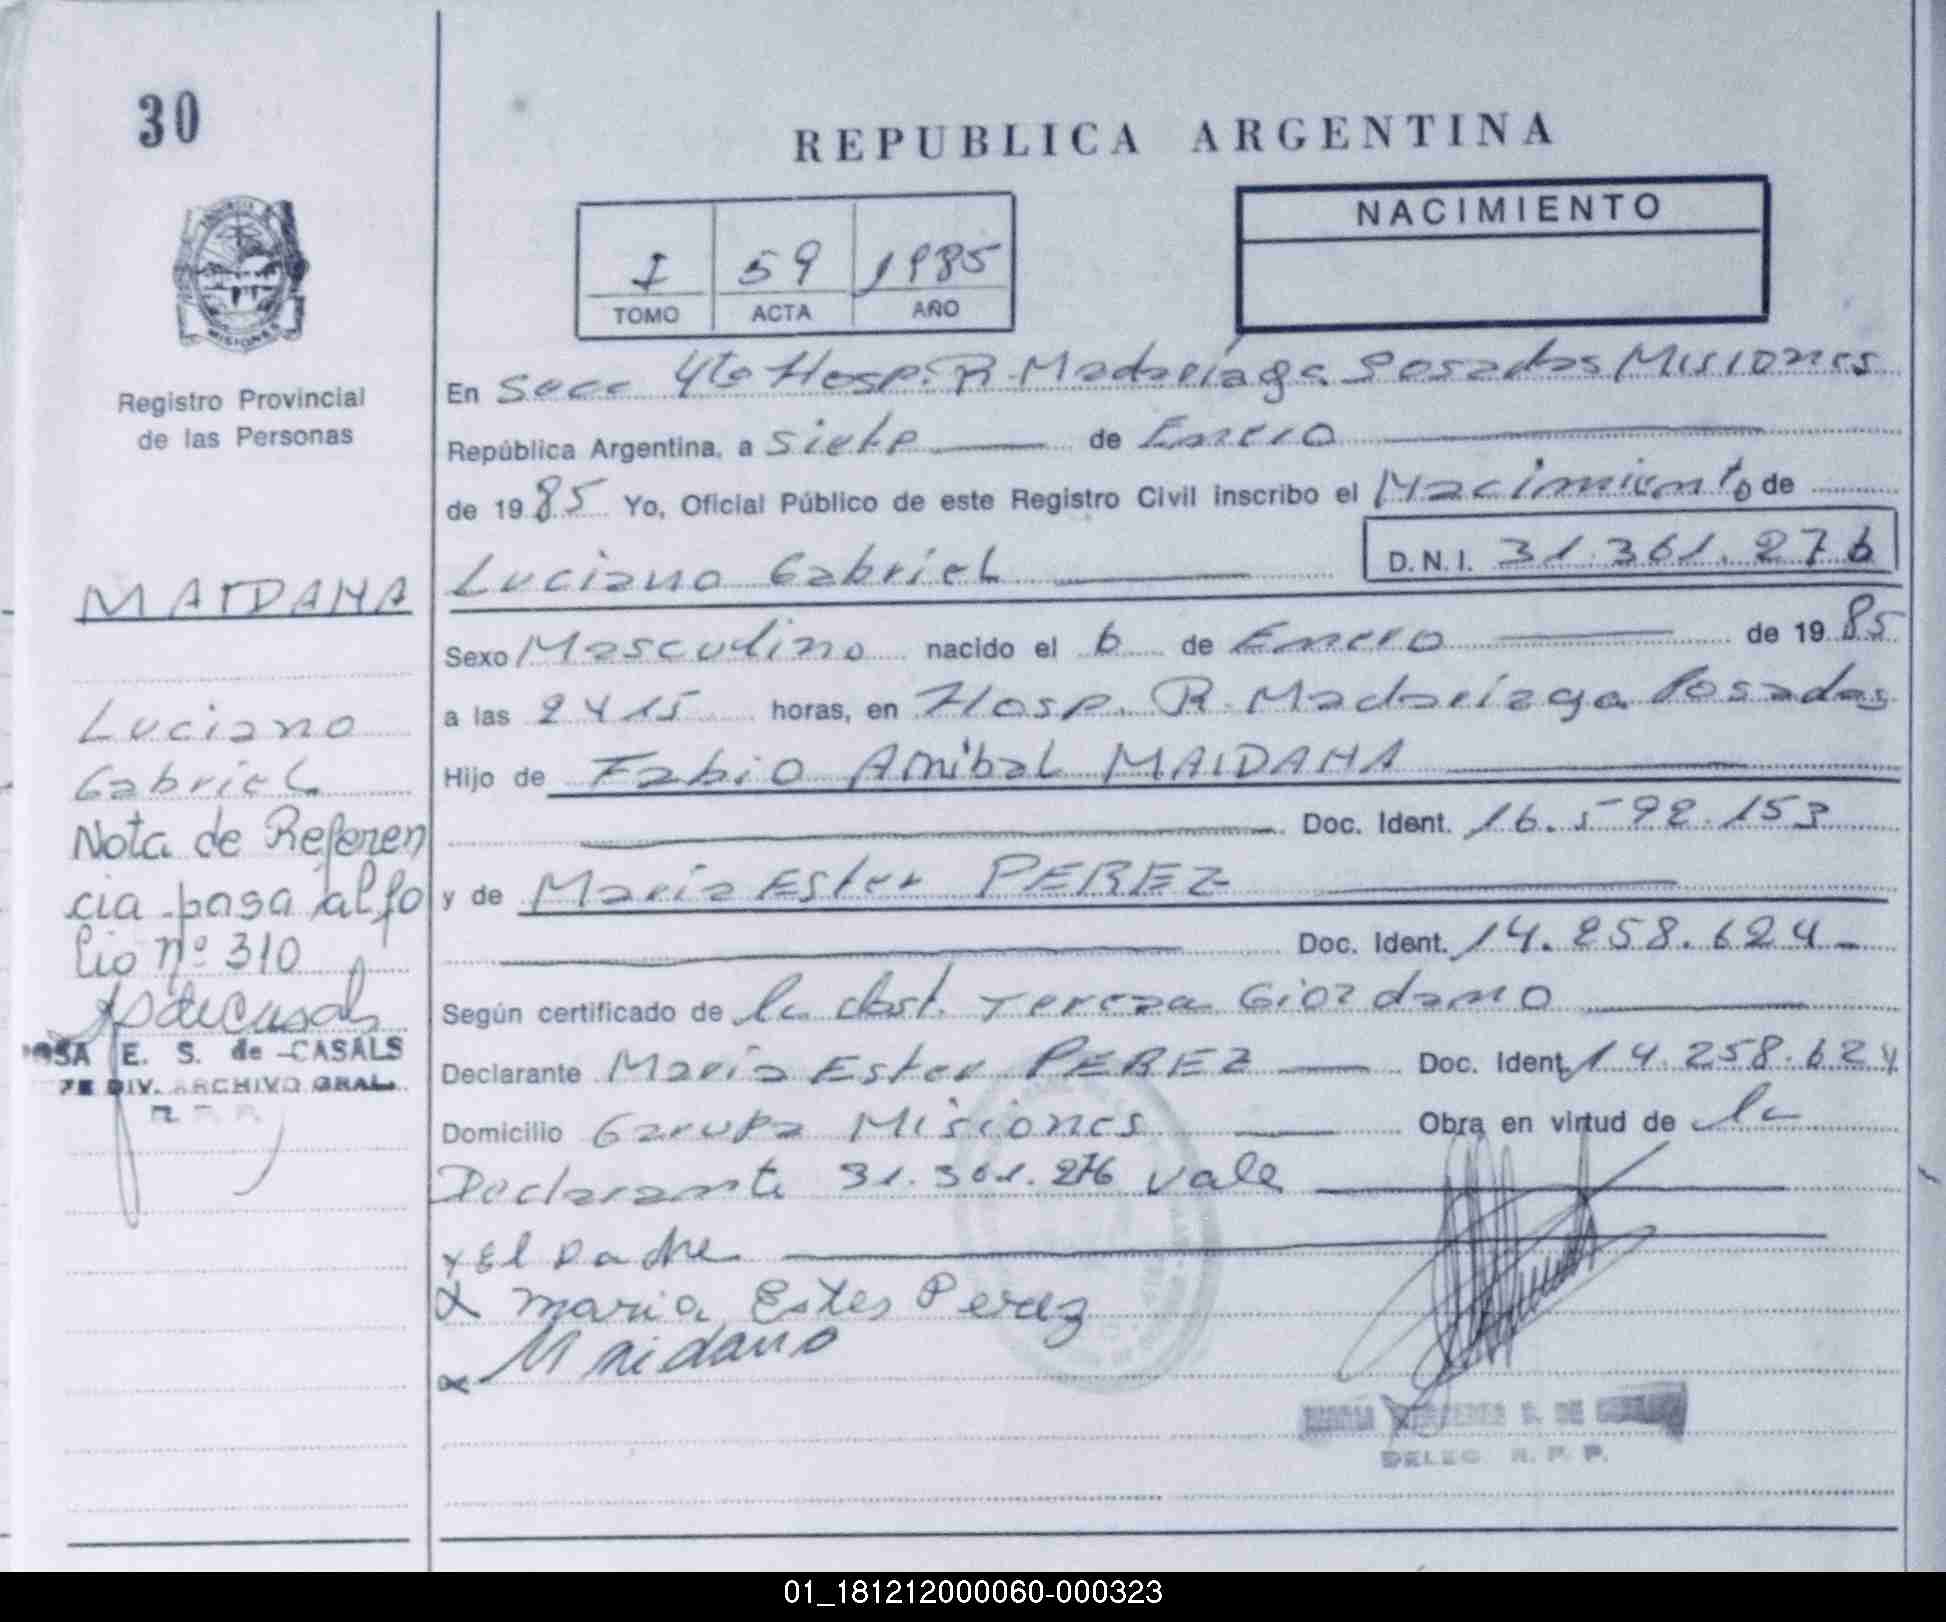 30
REPUBLICA ARGENTINA
PROVINCIA DE
MISIONES
Registro Provincial
de las Personas
I 59 1985
TOMO ACTA AÑO
NACIMIENTO
En Secc 4ta Hosp. R. Madariaga Posadas Misiones
República Argentina, a siete de Enero
de 1985 Yo, Oficial Público de este Registro Civil inscribo el Nacimiento de
Luciano Gabriel D.N.I. 31.361.276
MAIDANA
Sexo Masculino nacido el 6 de Enero de 1985
a las 2 y 15 horas, en Hosp. R. Madariaga Posadas
Hijo de Fabio Anibal MAIDANA
Doc. Ident. 16.592.153
y de Maria Ester PEREZ
Doc. Ident. 14.258.624
Según certificado de la obst. Tereza Giordano
Declarante Maria Ester PEREZ Doc. Ident. 14.258.624
Domicilio Garupa Misiones Obra en virtud de la
Declarante 31.361.276 vale
y El Padre
x maria Ester Perez
x Maidana
DELEG. R. P. P.
Luciano
Gabriel
Nota de Referen
cia pasa al fo
lio nº 310
E. S. de CASALS
DIV. ARCHIVO GRAL.
01_181212000060-000323